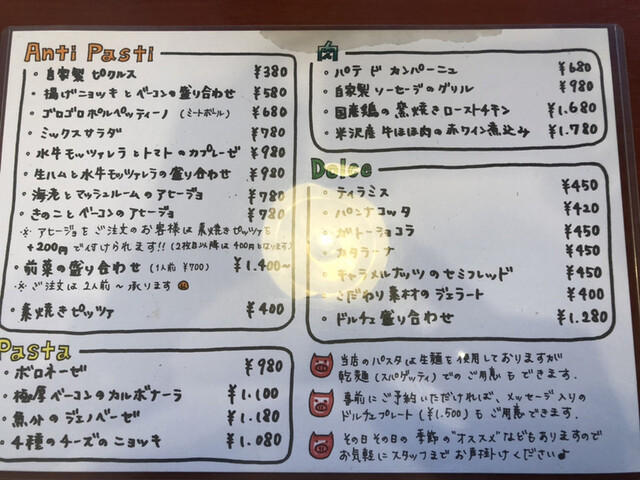 Anti Pasti
・自家製ピクルス ¥380
・揚げニョッキとベーコンの盛り合わせ ¥580
・ゴロゴロポルペッティーノ(ミートボール) ¥680
・ミックスサラダ ¥780
・水牛モッツァレラとトマトのカプレーゼ ¥980
・生ハムと水牛モッツァレラの盛り合わせ ¥980
・海老とマッシュルームのアヒージョ ¥780
・きのことベーコンのアヒージョ ¥780
※アヒージョをご注文のお客様は素焼きピッツァを
+200円で付けられます!!(2枚目以降は400円となります)
・前菜の盛り合わせ(1人前 ¥700) ¥1.400~
※ご注文は2人前~承ります
・素焼きピッツァ ¥400
Pasta
・ボロネーゼ ¥980
・極厚ベーコンのカルボナーラ ¥1.100
・魚介のジェノベーゼ ¥1.180
・4種のチーズのニョッキ ¥1.080
肉
・パテ ド カンパーニュ ¥680
・自家製ソーセージのグリル ¥980
・国産鶏の窯焼きローストチキン ¥1.680
・米沢産牛ほほ肉の赤ワイン煮込み ¥1.780
Dolce
・ティラミス ¥450
・パンナコッタ ¥420
・ガトーショコラ ¥450
・カタラーナ ¥450
・キャラメルナッツのセミフレッド ¥450
・こだわり素材のジェラート ¥400
・ドルチェ盛り合わせ ¥1.280
当店のパスタは生麺を使用しておりますが
乾麺(スパゲッティ)でのご用意もできます.
事前にご予約いただければ、メッセージ入りの
ドルチェプレート(¥1.500)もご用意できます.
その日その日の季節の"オススメ"などもありますので
お気軽にスタッフまでお声掛けください♪